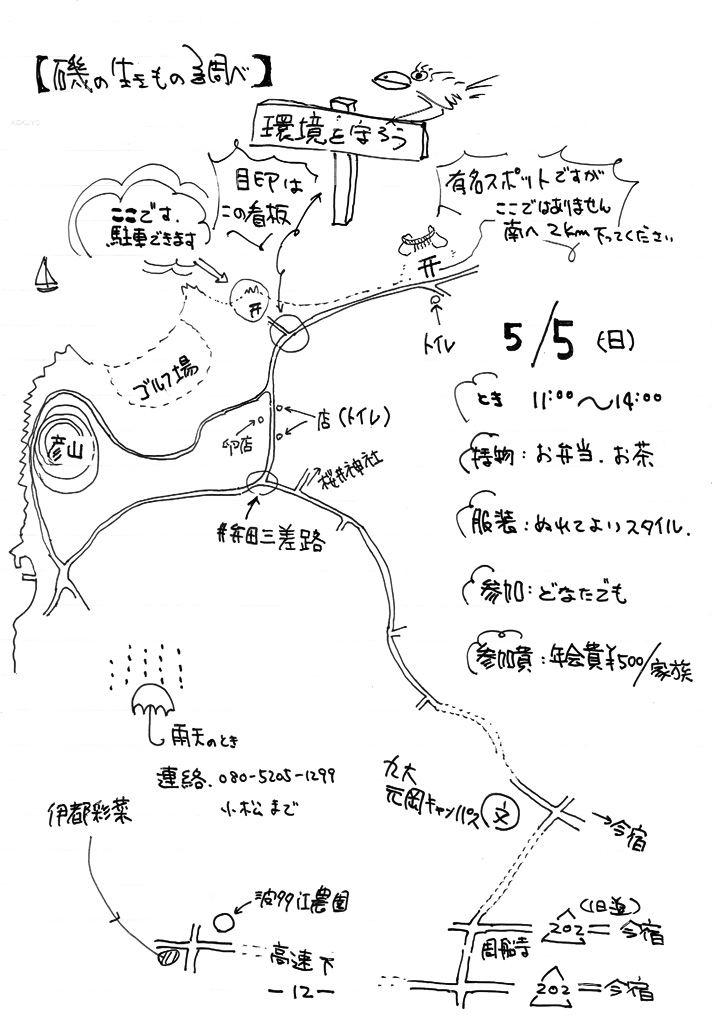 【磯の生きもの調べ】
KOKUYO
環境を守ろう
目印は
この看板
ここです.
駐車できます
有名スポットですが
ここではありません
南へ2km下ってください
トイレ
ゴルフ場
5/5(日)
とき 11:00〜14:00
店(トイレ)
彦山
桜井神社
持物:お弁当.お茶
井田三差路
服装:ぬれてよいスタイル.
参加:どなたでも
参加費:年会費¥500/家族
雨天のとき
連絡.080-5205-1299
小松まで
伊都彩菜
九大
元岡キャンパス
文
→今宿
波多江農園
(旧道)
202 今宿
周船寺
高速下
202 今宿
-12-